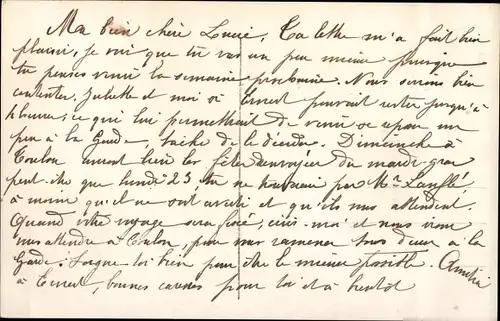 Ma bien chère Lucie, Ta lettre m'a fait bien
plaisir, je vois que tu vas un peu mieux puisque
tu penses venir la semaine prochaine. Nous serions bien
contentes, Juliette et moi si Ernest pourrait rester jusqu'à
heures, ce que lui permettrait de venir se reposer un
peu à la Garde, tache de le décider. Dimanche à
Toulon auront lieu les fêtes du mardi-gras
peut-être que lundi 23, tu ne trouverais pas Mr
à moins qu'il ne soit averti et qu'ils nous attendent.
Quand votre voyage sera fixé, écris-moi et nous irons
vous attendre à Toulon, pour vous ramener tous deux à la
Garde. Soigne-toi bien pour être le mieux possible. Amitié
à Ernest, bonnes caresses pour toi et à bientôt